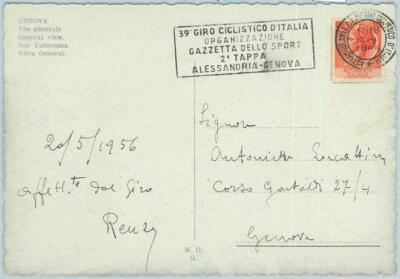 GENOVA
Vue générale
General view.
Das Panorama.
Vista General.
39° GIRO CICLISTICO D'ITALIA
ORGANIZZAZIONE
GAZZETTA DELLO SPORT
2ª TAPPA
ALESSANDRIA-GENOVA
20/5/1956
affett.te dal Giro
Renzo
Signora
Antonietta
Corso Gastaldi 27/4
Genova
W. D.
G.